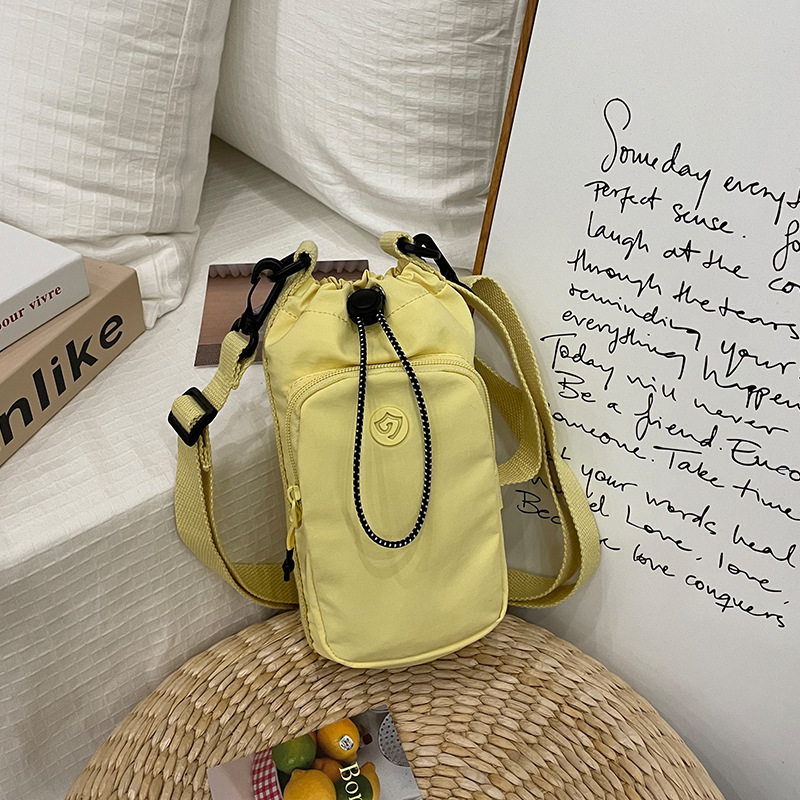 our vivre
nlike
Someday everyt
perfect sense. fo
laugh at the co
through the tears
reminding your
everything happen
Today will never
Be a friend. Enco
omeone. Take time
your words heal
Love, love,
love conquers
Bo